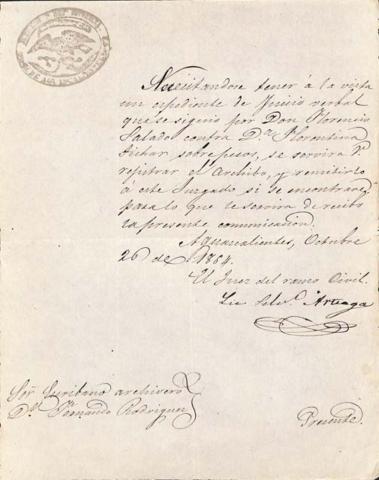 Necesitandose tener á la vista
un espediente de Juicio verbal
que se siguió por Don Florencio
Salado contra Dª Florentina
sobre pesos, se servirá V.
registrar el Archibo, y remitirlo
á este Juzgado si se encontrare,
para lo que le servira de recibo
la presente comunicacion.
Aguascalientes, Octubre
26 de 1864.
El Juez del ramo Civil.
Lic Arteaga
Sor Escribano archivero
Dn. Fernando Rodriguez
Presente.